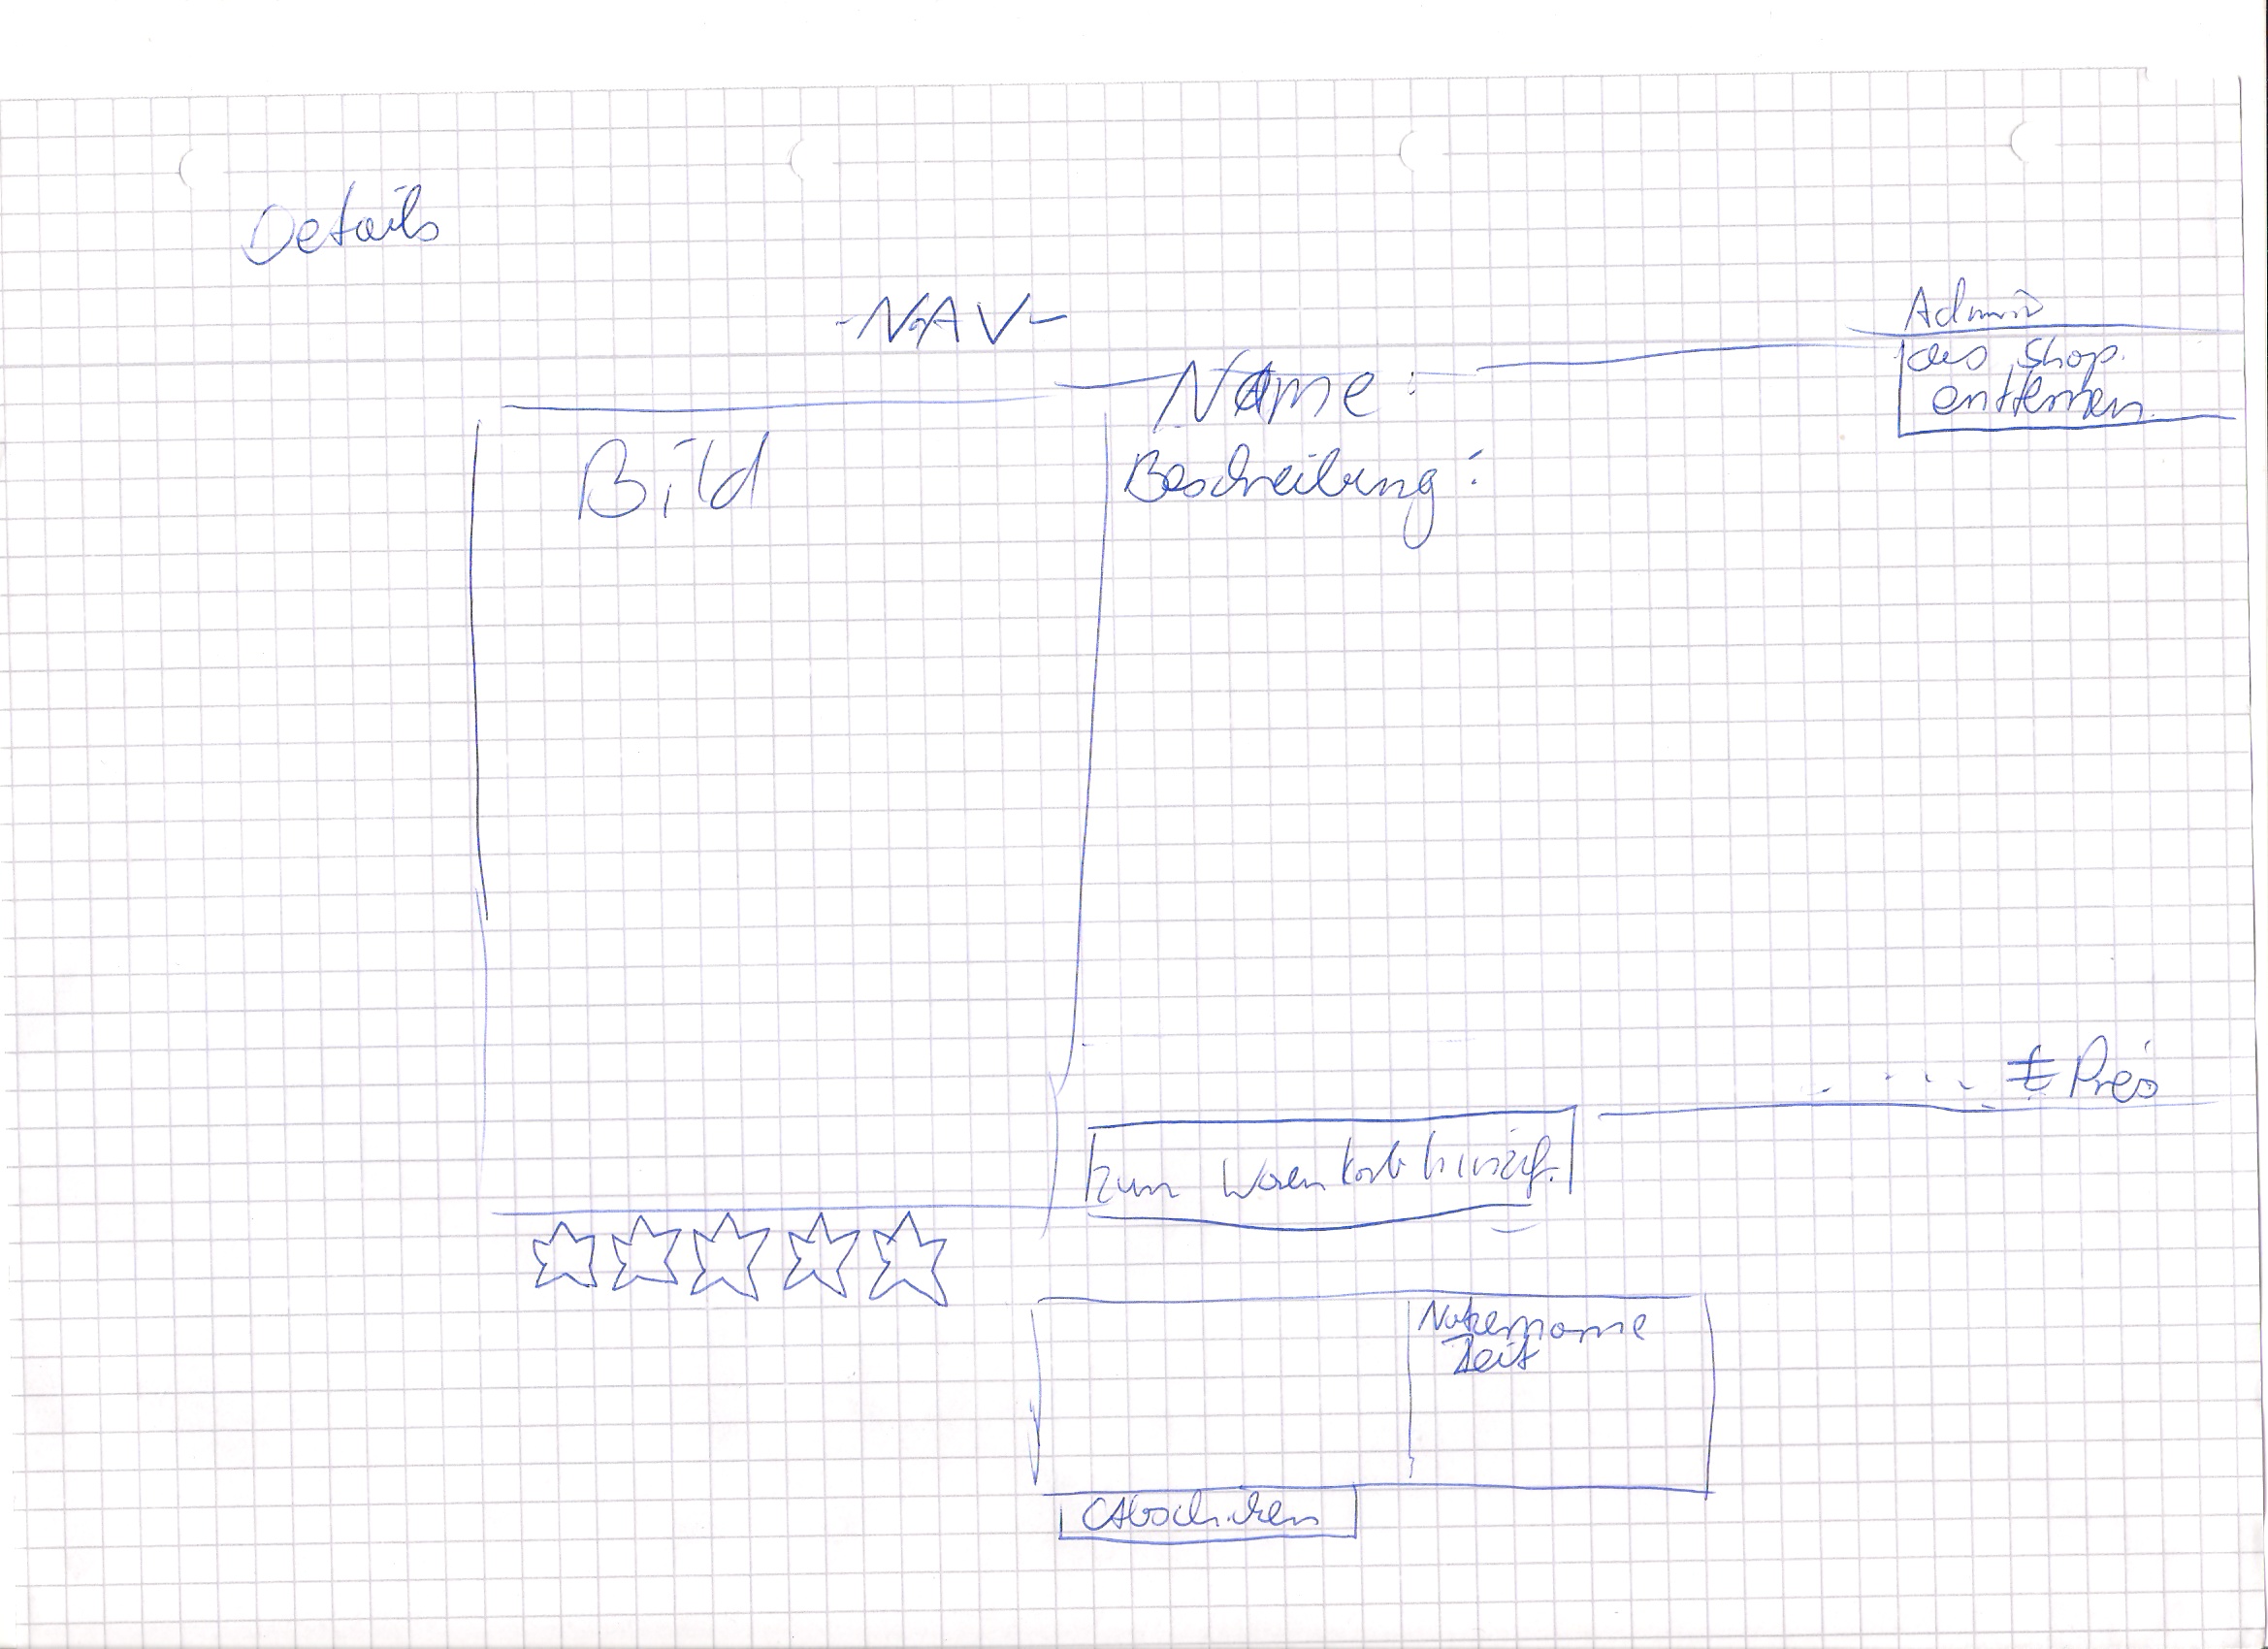 Details
-NAV-
Admin
Name:
aus Shop
entfernen
Bild
Beschreibung:
€ Preis
zum Warenkorb hinzuf.
Nutzername
Zeit
Abschicken